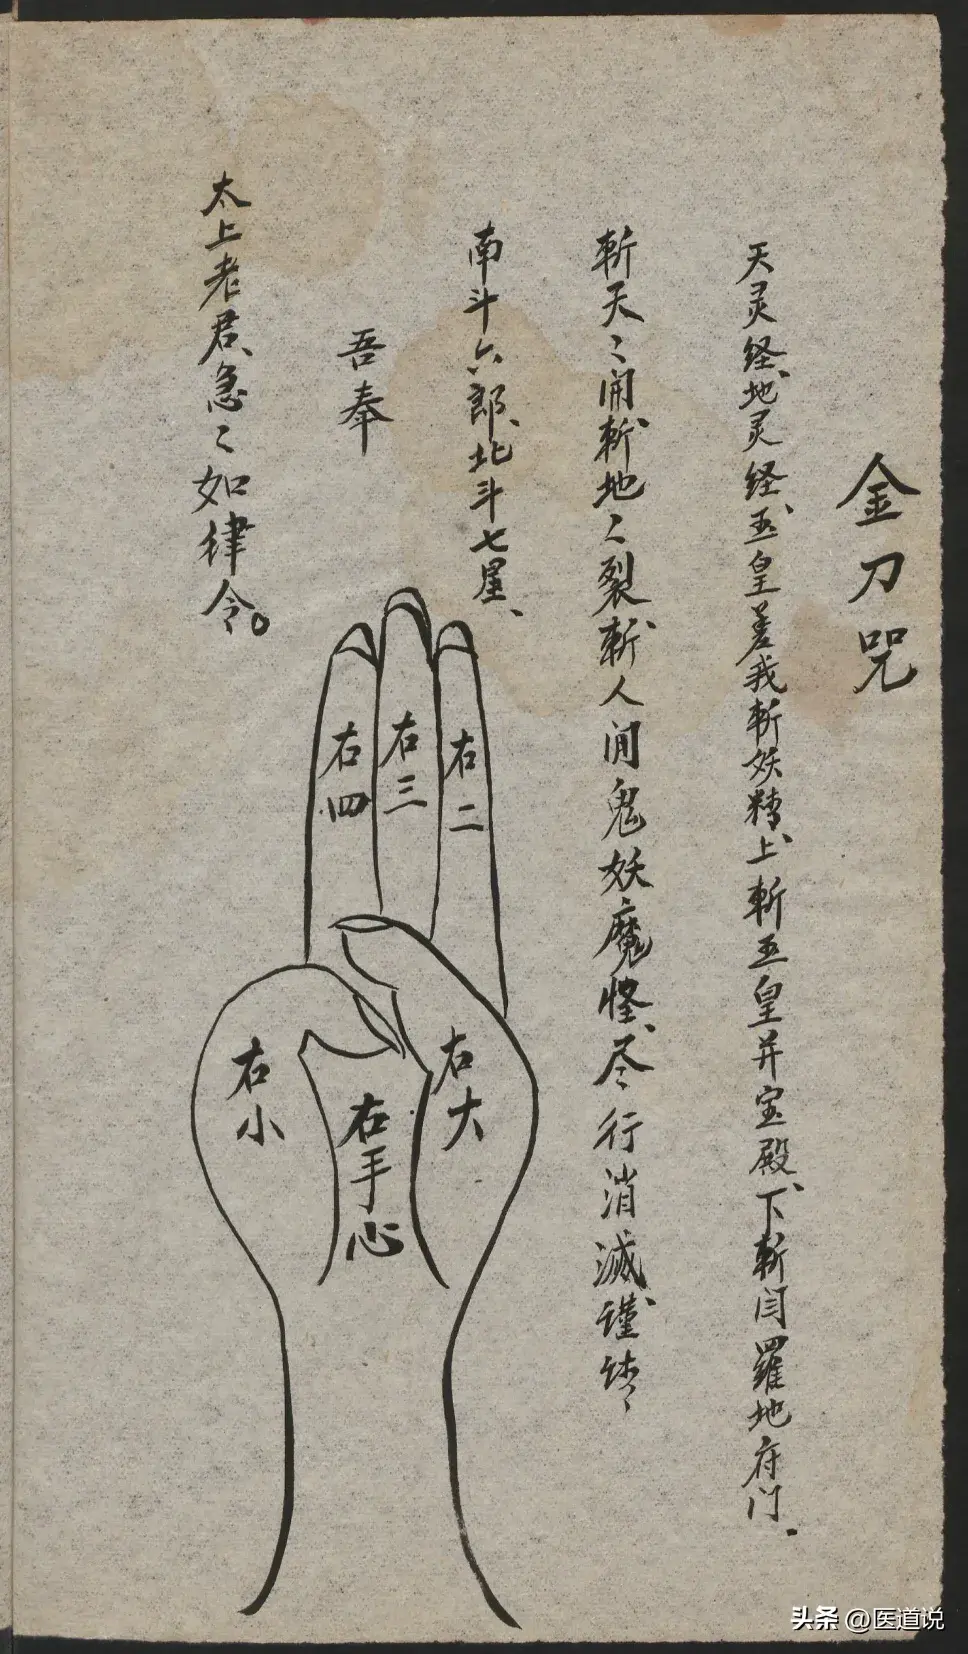 金刀咒
天灵经、地灵经、玉皇差我斩妖精、上斩玉皇并宝殿、下斩闫羅地府门.
斩天〻開、斩地〻裂、斩人间鬼妖魔怪、尽行消滅、谨请〻
南斗六郎、北斗七星、
吾奉
太上老君、急〻如律令。
右四
右三
右二
右小
右手心
右大
头条 @医道说